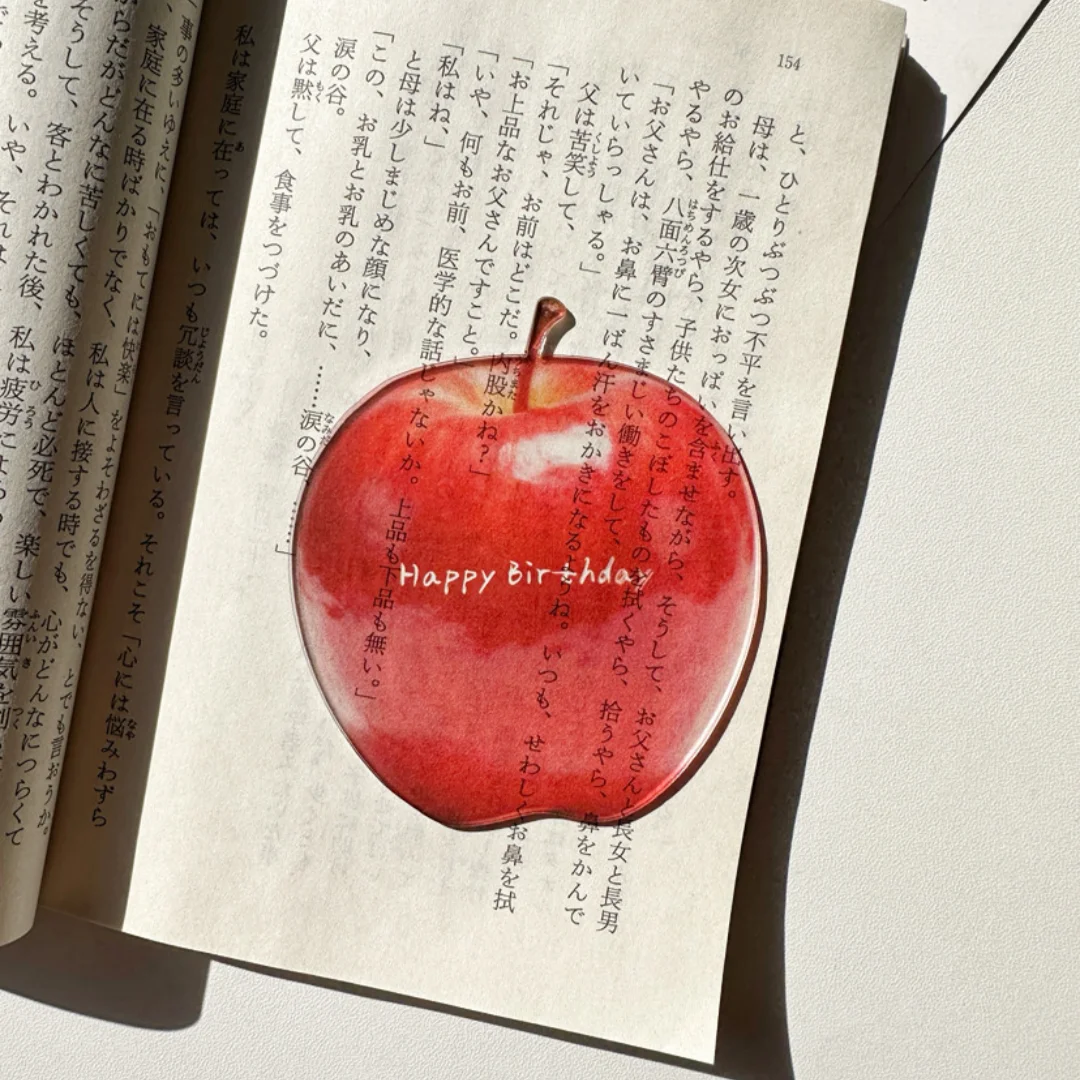 154
と、ひとりぶつぶつ不平を言い出す。
母は、一歳の次女におっぱいを含ませながら、そうして、お父さんと長女と長男
のお給仕をするやら、子供たちのこぼしたものを拭くやら、拾うやら、鼻をかんで
やるやら、八面六臂のすさまじい働きをして、
「お父さんは、お鼻に一ばん汗をおかきになるようね。いつも、せわしくお鼻を拭
いていらっしゃる。」
父は苦笑して、
「それじゃ、お前はどこだ。内股かね?」
「お上品なお父さんですこと。」
「いや、何もお前、医学的な話じゃないか。上品も下品も無い。」
「私はね、」
と母は少しまじめな顔になり、
「この、お乳とお乳のあいだに、……涙の谷、……」
涙の谷。
父は黙して、食事をつづけた。
私は家庭に在っては、いつも冗談を言っている。それこそ「心には悩みわずら
事の多いゆえに、「おもてには快楽」をよそわざるを得ない、とでも言おうか。
、家庭に在る時ばかりでなく、私は人に接する時でも、心がどんなにつらくて
からだがどんなに苦しくても、ほとんど必死で、楽しい雰囲気を創
そうして、客とわかれた後、私は疲労に
を考える。いや、それは
Happy Birthday